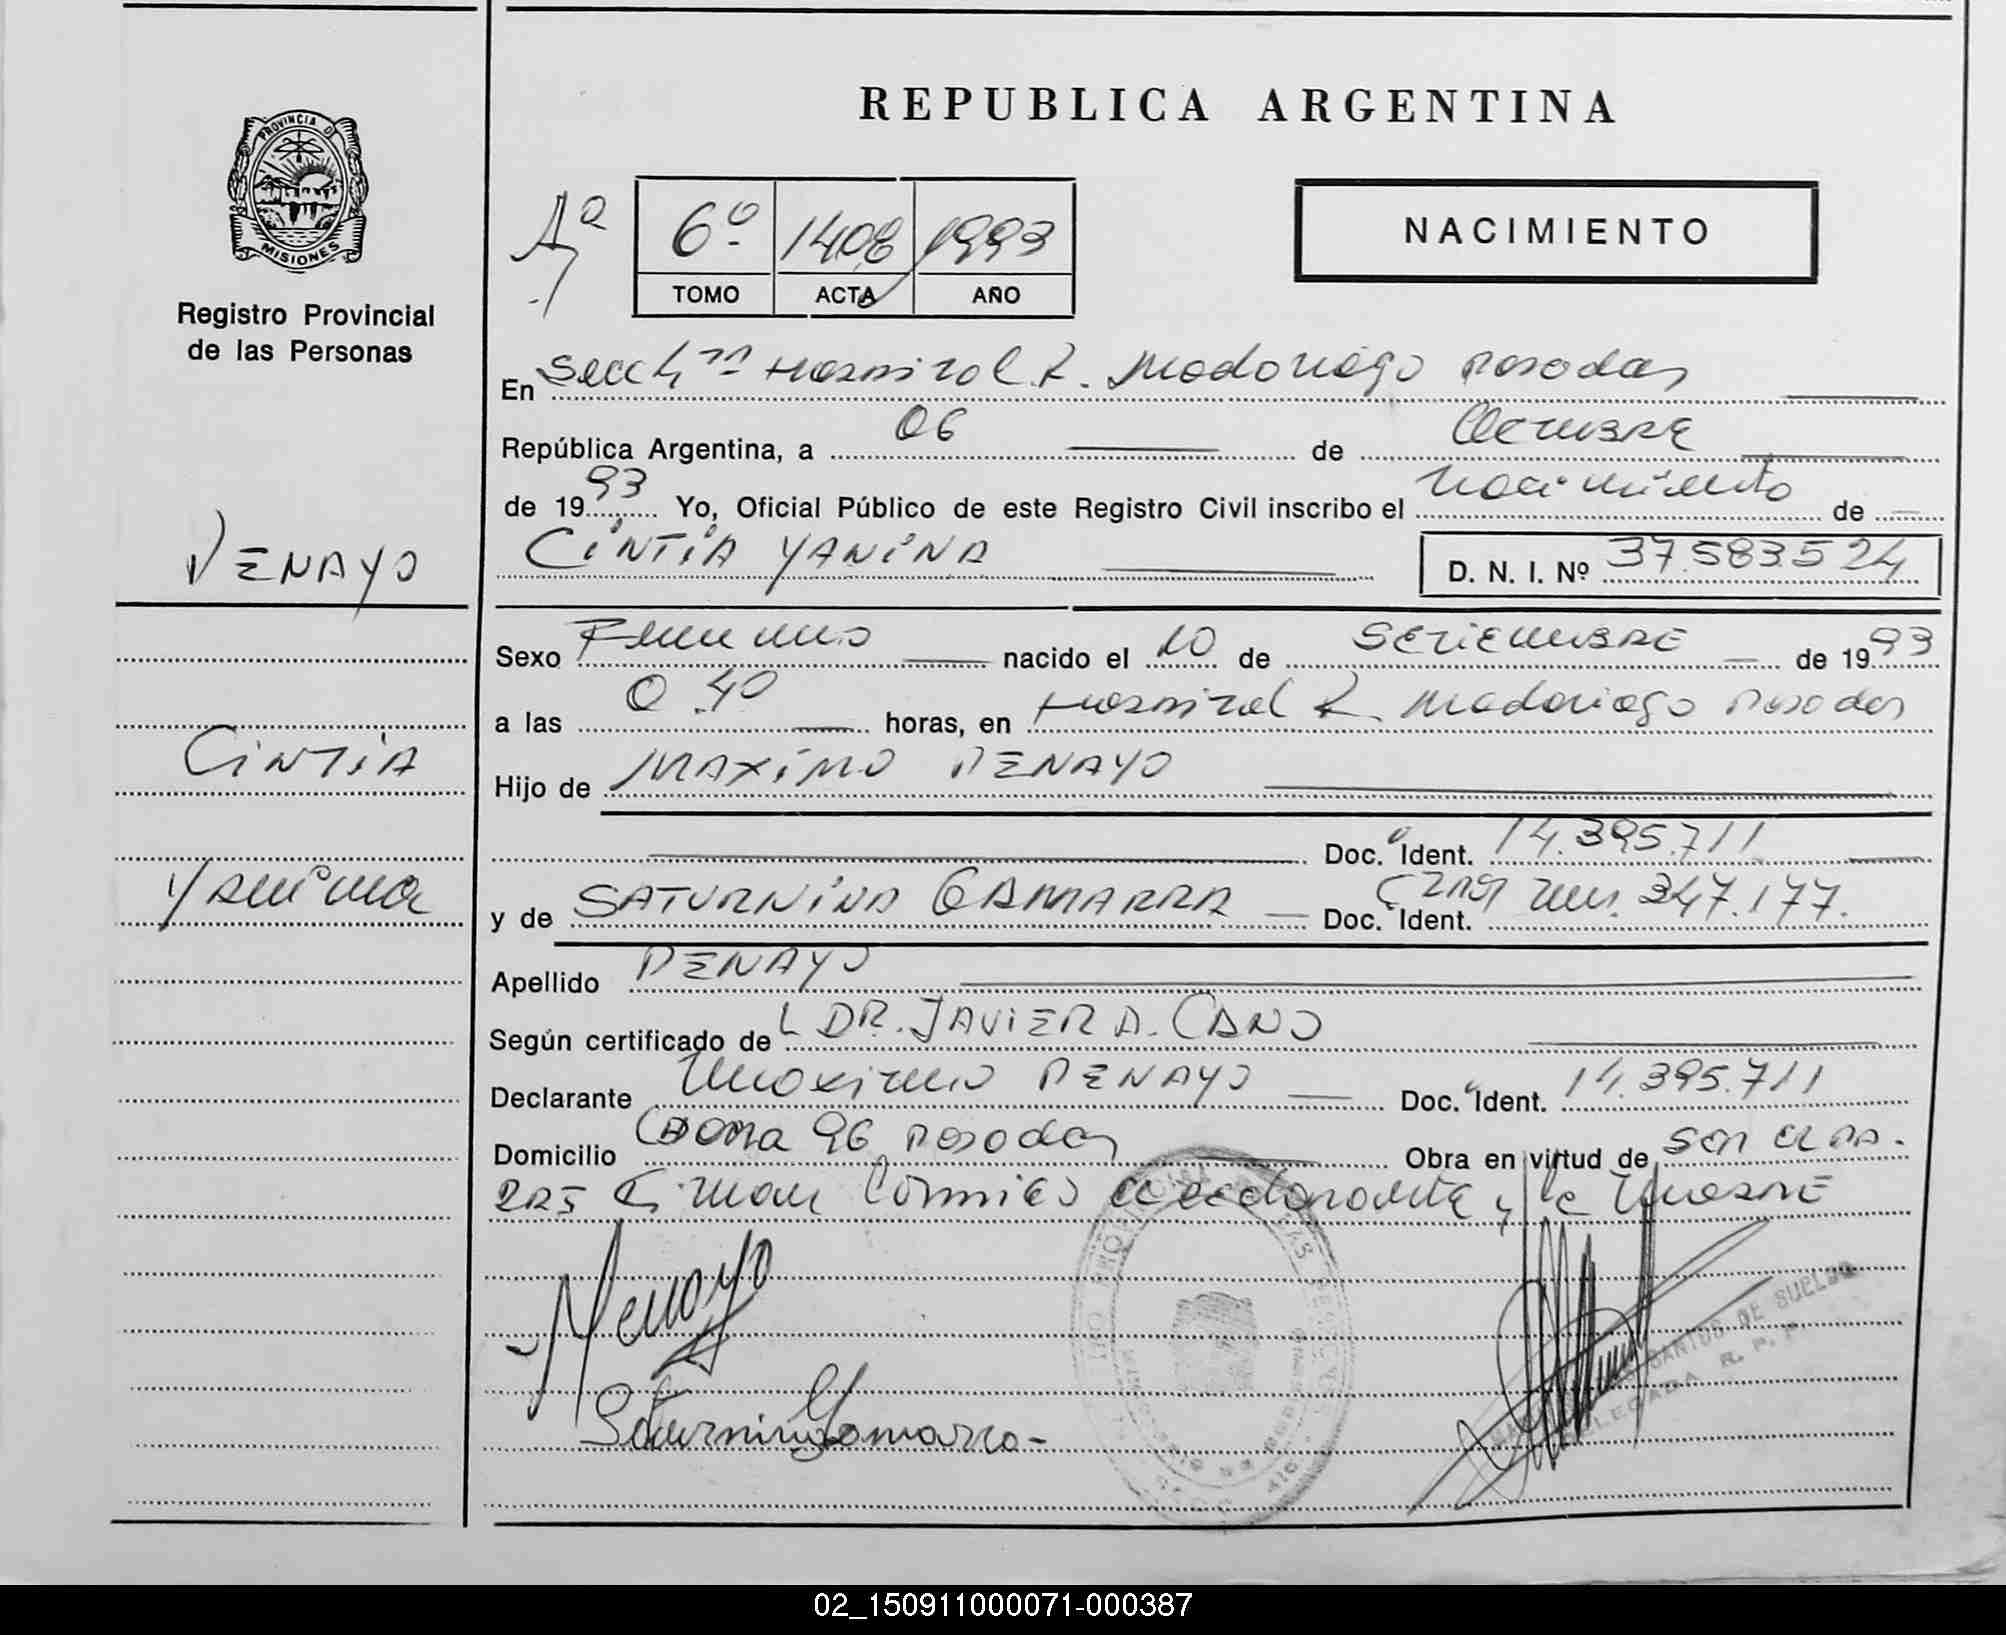 REPUBLICA ARGENTINA
PROVINCIA D
MISIONES
Registro Provincial
de las Personas
6º 1408 1993
TOMO ACTA AÑO
NACIMIENTO
En Secc 4ª Hospital R. Madariaga Posadas
República Argentina, a 06 de Octubre
de 1993 Yo, Oficial Público de este Registro Civil inscribo el nacimiento de
PENAYO
CINTIA YANINA D. N. I. Nº 37.583.524
Sexo Femenino nacido el 10 de SETIEMBRE de 1993
a las 0.40 horas, en Hospital R. Madariaga Posadas
CINTIA
Hijo de MAXIMO PENAYO
Doc. Ident. 14.395.711
Yanina
y de SATURNINA GAMARRA Doc. Ident. 347.177.
Apellido PENAYO
Según certificado de L DR. JAVIER A. CANO
Declarante Maximo PENAYO Doc. Ident. 14.395.711
Domicilio 96 Posadas Obra en virtud de ser el PA-
DRE Firman el declarante y la Madre
Penayo
Saturnina Gamarra
SANTOS DE SUELDO
DELEGADA R. P. P.
02_150911000071-000387